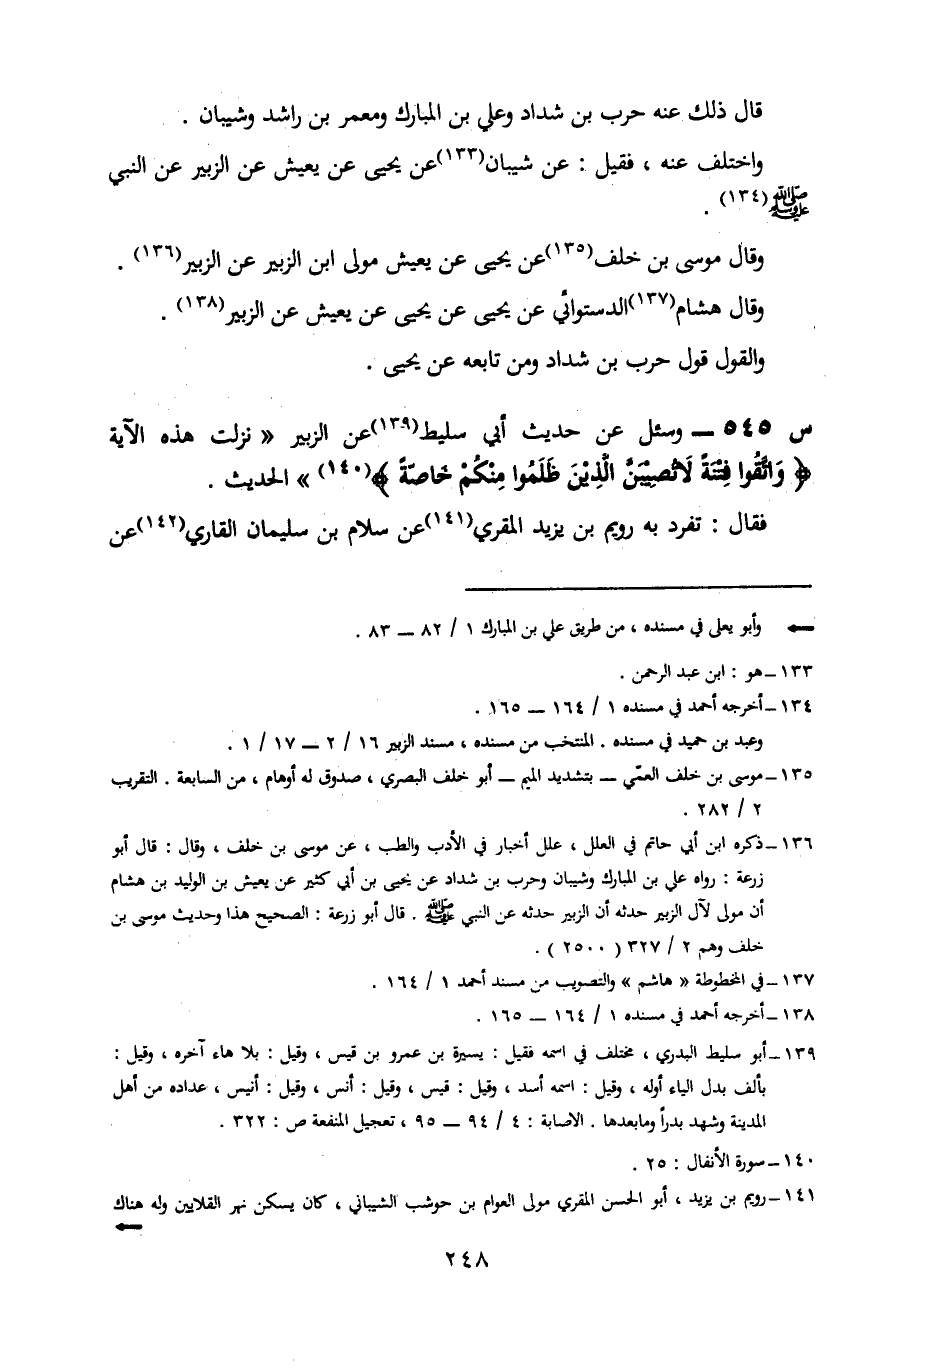 قال ذلك عنه حرب بن شداد وعلي بن المبارك ومعمر بن راشد وشيبان .
واختلف عنه ، فقيل : عن شيبان(١٣٣)عن يحيى عن يعيش عن الزبير عن النبي
ﷺ(١٣٤) .
وقال موسى بن خلف(١٣٥)عن يحيى عن يعيش مولى ابن الزبير عن الزبير(١٣٦) .
وقال هشام(١٣٧)الدستوائي عن يحيى عن يحيى عن يعيش عن الزبير(١٣٨) .
والقول قول حرب بن شداد ومن تابعه عن يحيى .
س ٥٤٥ ــ وسئل عن حديث أبي سليط(١٣٩)عن الزبير « نزلت هذه الآية
﴿ وَاتَّقُوا فِتْنَةً لَاتُصِيْبَنَّ الَّذِيْنَ ظَلَمُوا مِنْكُمْ خَاصّةً ﴾(١٤٠) » الحديث .
فقال : تفرد به رويم بن يزيد المقري(١٤١)عن سلام بن سليمان القاري(١٤٢)عن
← وأبو يعلى في مسنده ، من طريق علي بن المبارك ١ / ٨٢ ــ ٨٣ .
١٣٣ ــ هو : ابن عبد الرحمن .
١٣٤ ــ أخرجه أحمد في مسنده ١ / ١٦٤ ــ ١٦٥ .
وعبد بن حميد في مسنده . المنتخب من مسنده ، مسند الزبير ١٦ / ٢ ــ ١٧ / ١ .
١٣٥ ــ موسى بن خلف العمّي ــ بتشديد الميم ــ أبو خلف البصري ، صدوق له أوهام ، من السابعة . التقريب
٢ / ٢٨٢ .
١٣٦ ــ ذكره ابن أبي حاتم في العلل ، علل أخبار في الأدب والطب ، عن موسى بن خلف ، وقال : قال أبو
زرعة : رواه علي بن المبارك وشيبان وحرب بن شداد عن يحيى بن أبي كثير عن يعيش بن الوليد بن هشام
أن مولى لآل الزبير حدثه أن الزبير حدثه عن النبي ﷺ . قال أبو زرعة : الصحيح هذا وحديث موسى بن
خلف وهم ٢ / ٣٢٧ ( ٢٥٠٠ ) .
١٣٧ ــ في المخطوطة « هاشم » والتصويب من مسند أحمد ١ / ١٦٤ .
١٣٨ ــ أخرجه أحمد في مسنده ١ / ١٦٤ ــ ١٦٥ .
١٣٩ ــ أبو سليط البدري ، مختلف في اسمه فقيل : يسيرة بن عمرو بن قيس ، وقيل : بلا هاء آخره ، وقيل :
بألف بدل الياء أوله ، وقيل : اسمه أسد ، وقيل : قيس ، وقيل : أنس ، وقيل : أنيس ، عداده من أهل
المدينة وشهد بدراً ومابعدها . الاصابة : ٤ / ٩٤ ــ ٩٥ ، تعجيل المنفعة ص : ٣٢٢ .
١٤٠ ــ سورة الأنفال : ٢٥ .
١٤١ ــ رويم بن يزيد ، أبو الحسن المقري مولى العوام بن حوشب الشيباني ، كان يسكن نهر القلايين وله هناك
←
٢٤٨